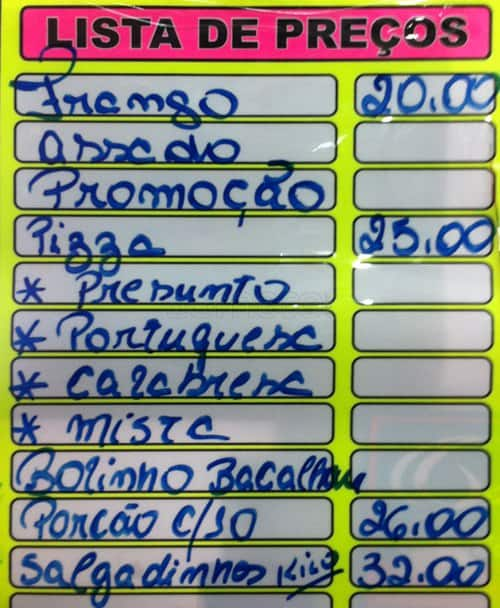 LISTA DE PREÇOS
Frango 20.00
Assado
Promoção
Pizza 25.00
* Presunto
* Portuguesa
* Calabresa
* Mista
Bolinho Bacalhau
Porcão c/10 26.00
Salgadinhos Kilo 32.00